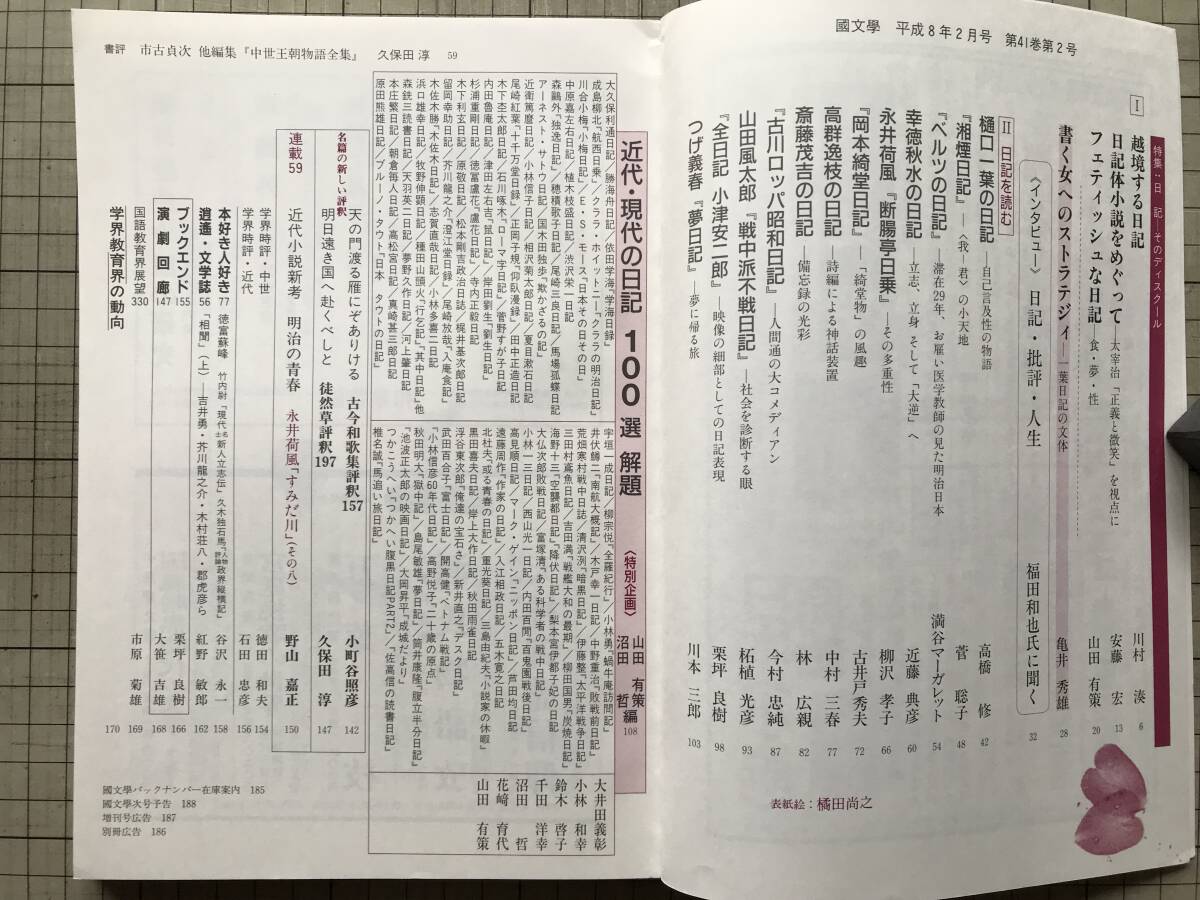 國文學 平成8年2月号 第41巻第2号
特集・日記―そのディスクール
Ⅰ
越境する日記 川村 湊 6
日記体小説をめぐって―太宰治「正義と微笑」を視点に 安藤 宏 13
フェティッシュな日記 食・夢・性 山田 有策 20
書く女へのストラテジィ―一葉日記の文体 亀井 秀雄 28
〈インタビュー〉 日記・批評・人生 福田和也氏に聞く 32
Ⅱ 日記を読む
樋口一葉の日記 ―自己言及性の物語 高橋 修 42
『湘煙日記』―〈我―君〉の小天地 菅 聡子 48
『ベルツの日記』 滞在29年、お雇い医学教師の見た明治日本 満谷マーガレット 54
幸徳秋水の日記 ―立志、立身 そして「大逆」へ 近藤 典彦 60
永井荷風『断腸亭日乗』 ―その多重性 柳沢 孝子 66
『岡本綺堂日記』 ―「綺堂物」の風趣 古井戸 秀夫 72
高群逸枝の日記 ―詩編による神話装置 中村 三春 77
斎藤茂吉の日記 ―備忘録の光彩 林 広親 82
『古川ロッパ昭和日記』 ―人間通の大コメディアン 今村 忠純 87
山田風太郎『戦中派不戦日記』 ―社会を診断する眼 柘植 光彦 93
『全日記 小津安二郎』 ―映像の細部としての日記表現 栗坪 良樹 98
つげ義春『夢日記』 ―夢に帰る旅 川本 三郎 103
表紙絵：橘田尚之
書評 市古貞次 他編集『中世王朝物語全集』 久保田 淳 59
近代・現代の日記 100選 解題 〈特別企画〉 山田 有策 沼田 哲 編 108
大久保利通日記／勝海舟日記／依田学海「学海日録」
成島柳北「航西日乗」／クララ・ホイットニー「クララの明治日記」
川合小梅「小梅日記」／E・S・モース「日本その日その日」
中原嘉左右日記／植木枝盛日記／渋沢栄一日記
森鷗外「独逸日記」／穂積歌子日記／尾崎三良日記／馬場孤蝶日記
アーネスト・サトウ日記／国木田独歩「欺かざるの記」
近衛篤麿日記／小林信子日記／相沢菊太郎日記／夏目漱石日記
尾崎紅葉「十千万堂日録」／正岡子規「仰臥漫録」／田中正造日記
木下杢太郎日記／石川啄木「ローマ字日記」／菅野すが子日記
内田魯庵日記／津田左右吉「鼠日記」／岸田劉生「劉生日記」
杉浦重剛日記／徳冨蘆花「蘆花日記」／寺内正毅日記
木下利玄日記／原敬日記／松本剛吉政治日誌／梶井基次郎日記
留岡幸助日記／芥川龍之介「澄江堂日録」／尾崎放哉「入庵食記」
木佐木勝「木佐木日記」／志賀直哉日記／小林多喜二日記
浜口雄幸日記／牧野伸顕日記／種田山頭火「行乞記」「其中日記」他
森銑三読書日記／天羽英二日記／夢野久作日記／河上肇日記
本庄繁日記／朝倉毎人日記／高松宮日記／真崎甚三郎日記
原田熊雄日記／ブルーノ・タウト「日本 タウトの日記」
宇垣一成日記／柳宗悦「全羅紀行」／小林勇「蝸牛庵訪問記」
井伏鱒二「南航大概記」／木戸幸一日記／中野重治「敗戦前日記」
荒畑寒村戦中日誌／清沢洌「暗黒日記」／伊藤整「太平洋戦争日記」
三田村鳶魚日記／吉田満「戦艦大和の最期」／柳田国男「炭焼日記」
海野十三「空襲都日記」「降伏日記」／梨本宮伊都子妃の日記
大仏次郎敗戦日記／富塚清「ある科学者の戦中日記」
小林一三日記／西山光一日記／内田百閒「百鬼園戦後日記」
高見順日記／マーク・ゲイン「ニッポン日記」／芦田均日記
遠藤周作「作家の日記」／入江相政日記／五木寛之日記
北杜夫「或る青春の日記」／重光葵日記／三島由紀夫「小説家の休暇」
黒田喜夫日記／岸上大作日記／秋田雨雀日記
浮谷東次郎「俺達の宝石さ」／新井直之「デスク日記」
武田百合子「富士日記」／開高健「ベトナム戦記」
「小林信彦60年代日記」／高野悦子「二十歳の原点」
秋田明大「獄中記」／島尾敏雄「夢日記」／筒井康隆「腹立半分日記」
「池波正太郎の映画日記」／大岡昇平「成城だより」
つかこうへい「つかへい腹黒日記PART2」／「佐高信の読書日記」
椎名誠「馬追い旅日記」
大井田義彰
小林 和幸
鈴木 啓子
千田 洋幸
沼田 哲
花﨑 育代
山田 有策
名篇の新しい評釈
天の門渡る雁にぞありける 古今和歌集評釈157 小町谷照彦 142
明日遠き国へ赴くべしと 徒然草評釈197 久保田 淳 147
連載59 近代小説新考 明治の青春 永井荷風「すみだ川」(その八) 野山 嘉正 150
学界時評・中世 徳田 和夫 154
学界時評・近代 石田 忠彦 156
本好き人好き 77 徳富蘇峰 竹内尉『現代名士新人立志伝』 久木独石馬『人物評論政界縦横記』 谷沢 永一 158
逍遙・文学誌 56 「相聞」(上)―吉井勇・芥川龍之介・木村荘八・郡虎彦ら 紅野 敏郎 162
ブックエンド 155 栗坪 良樹 166
演劇回廊 147 大笹 吉雄 168
国語教育界展望 330 市原 菊雄 169
学界教育界の動向 170
國文學バックナンバー在庫案内 185
國文學次号予告 188
増刊号広告 187
別冊広告 186